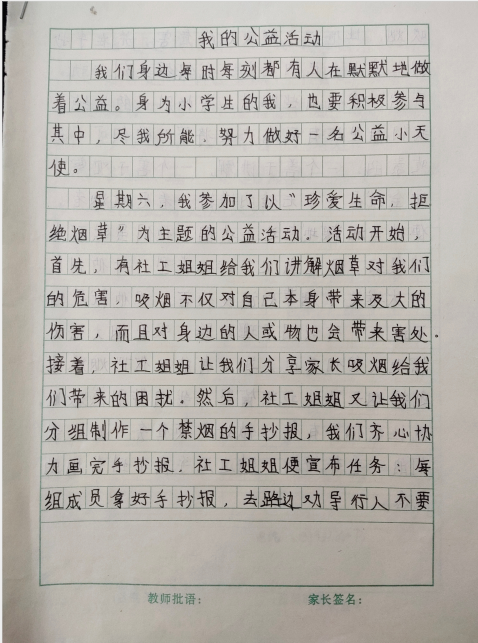 我的公益活动
我们身边每时每刻都有人在默默地做
着公益。身为小学生的我，也要积极参与
其中，尽我所能，努力做好一名公益小天
使。
星期六，我参加了以“珍爱生命，拒
绝烟草”为主题的公益活动。活动开始，
首先，有社工姐姐给我们讲解烟草对我们
的危害，吸烟不仅对自己本身带来及大的
伤害，而且对身边的人或物也会带来害处。
接着，社工姐姐让我们分享家长吸烟给我
们带来的困扰。然后，社工姐姐又让我们
分组制作一个禁烟的手抄报，我们齐心协
力画完手抄报，社工姐姐便宣布任务：每
组成员拿好手抄报，去路边劝导行人不要
教师批语：
家长签名：